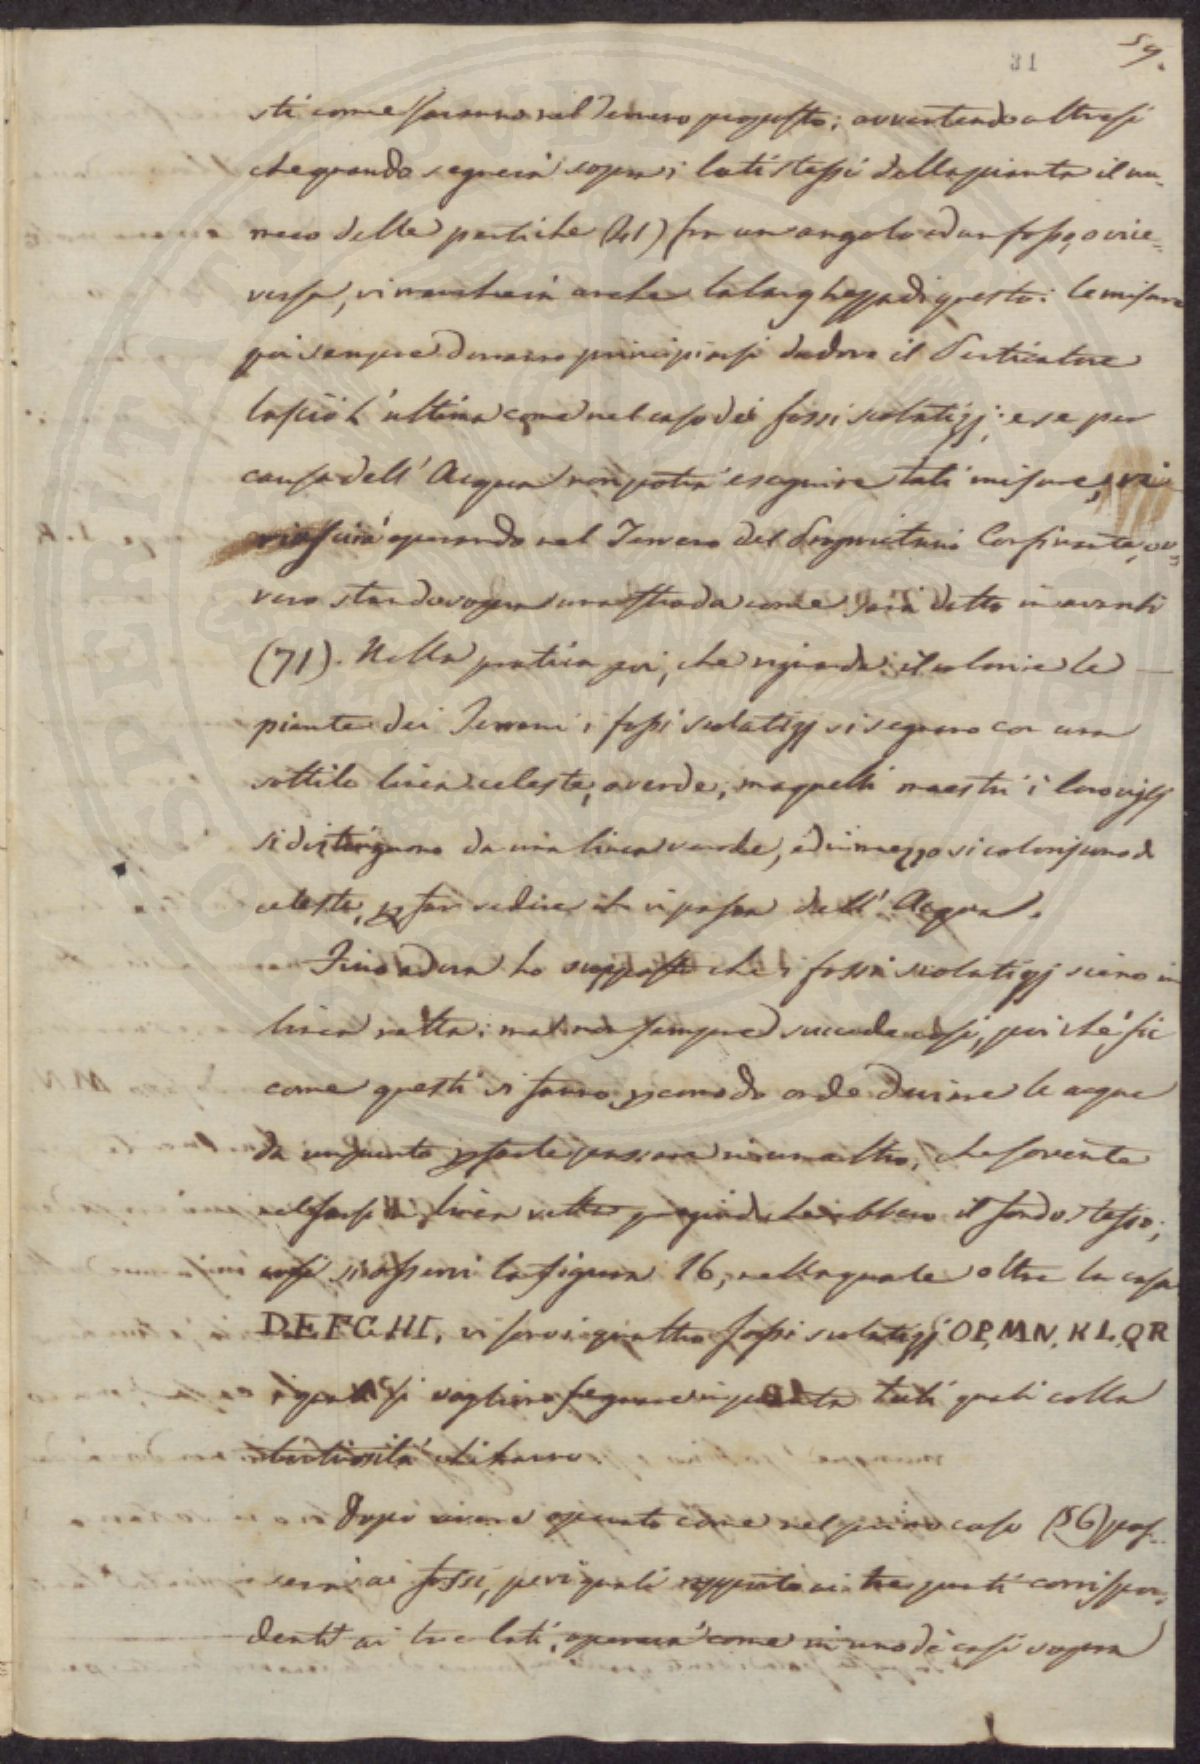 31 59.
sti come saranno nel Terreno proposto; avvertendo altresì
che quando segnerà sopra i lati stessi della pianta il nu-
mero delle pertiche (41) fra un angolo ed un fosso, o vice-
versa, vi marcherà anche la larghezza di questo: le misure
poi sempre dovranno principiarsi da dove il Perticatore
lasciò l'ultima come nel caso dei fossi scolatizj; e se per
causa dell'Acqua non potrà eseguire tali misure, vi
riuscirà operando nel Terreno del Proprietario Confinante, ov-
vero stando sopra una strada come sarà detto in avanti
(71). Nella pratica poi, che riguarda il colorire le
piante dei Terreni i fossi scolatizj si segnano con una
sottile linea celeste, o verde; ma quelli maestri i loro cigli
si distinguono da una linea verde, ed in mezzo si coloriscono di
celeste, p far vedere che vi passa dell'Acqua.
Fino ad ora ho supposto che i fossi scolatizj sieno in
linea retta; ma non sempre succede così, poichè sic
come questi si fanno p comodo onde deviare le acque
da un punto p farle passare in un altro, che sovente
nel farsi in linea retta pregiudicherebbero il fondo stesso;
così si osservi la figura 16, nella quale oltre la casa
DEFGHI, vi sono i quattro fossi scolatizj OP, MN, KL, QR
i quali si vogliono segnare in pianta tali quali colla
tortuosità che hanno
Dopo avere operato come nel primo caso (56) pas-
serai ai fossi, per i quali rapporto ai tre punti corrispon-
denti ai tre lati, opererà come in uno dei casi sopra